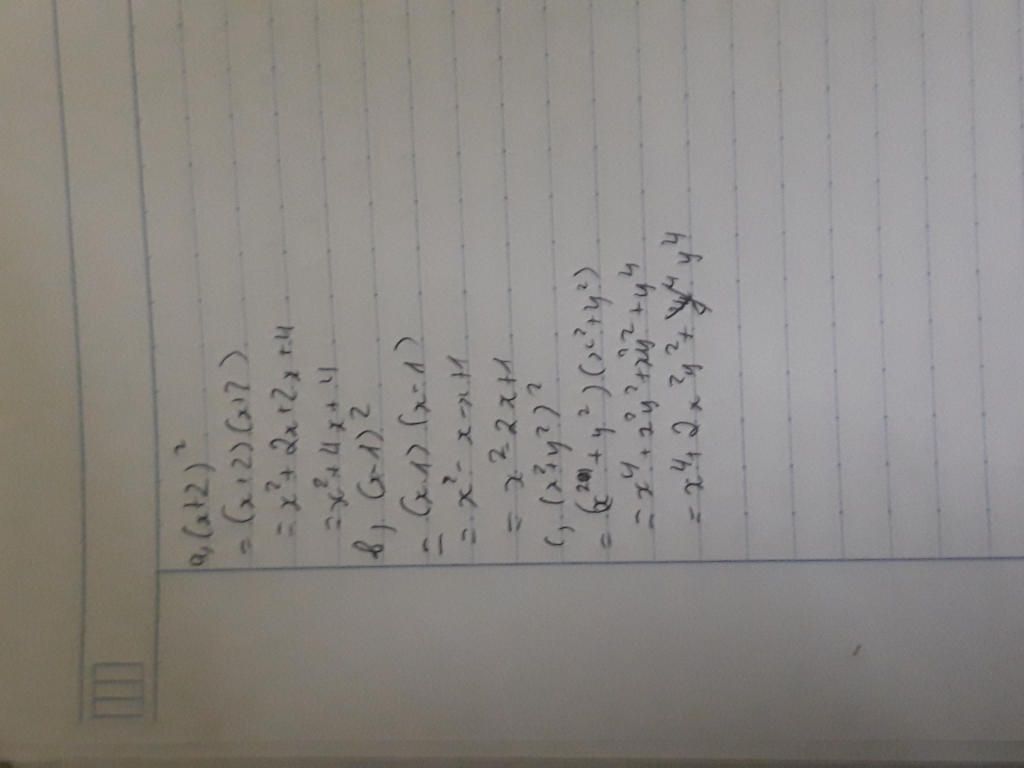 a, (x+2)²
= (x+2)(x+2)
= x²+2x+2x+4
= x²+4x+4
b, (x-1)²
= (x-1)(x-1)
= x²-x-x+1
= x²-2x+1
c, (x²+y²)²
= (x²+y²)(x²+y²)
= x⁴+x²y²+x²y²+y⁴
= x⁴+2x²y²+y⁴